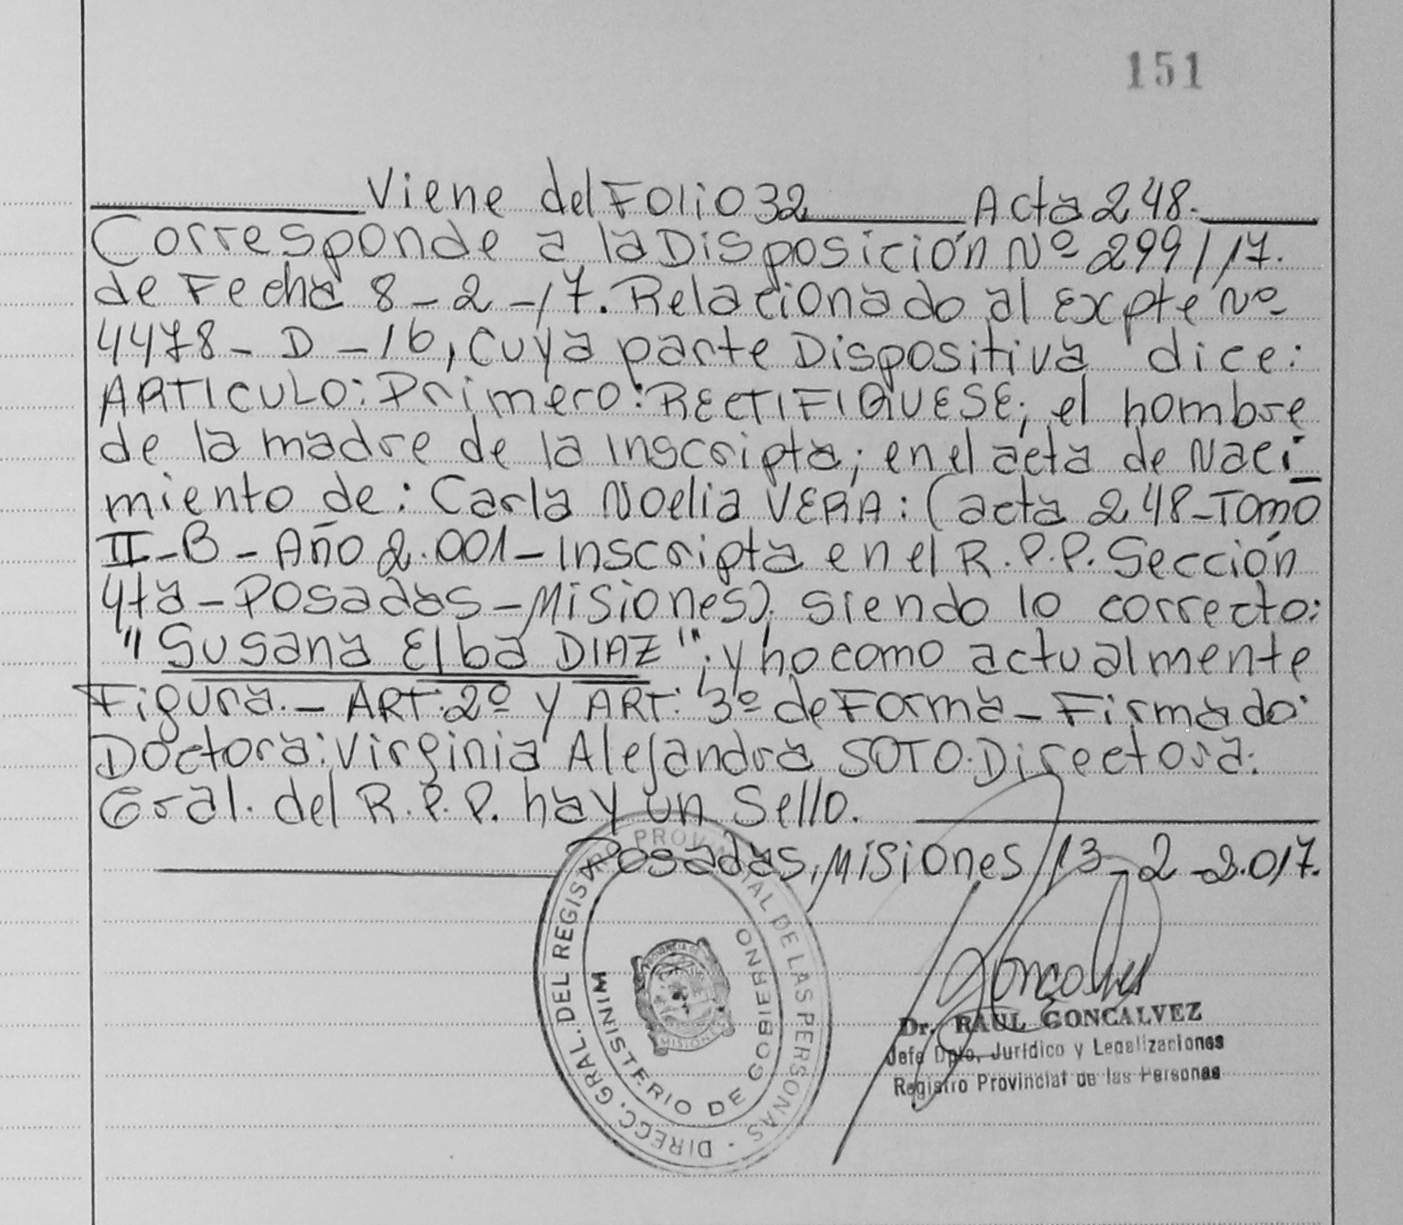 151
Viene del Folio 32 Acta 248.
Corresponde a la Disposición Nº 299/17.
de Fecha 8-2-17. Relacionado al Expte Nº
4478-D-16, cuya parte Dispositiva dice:
ARTICULO: Primero: RECTIFIQUESE; el nombre
de la madre de la Inscripta; en el acta de Naci-
miento de: Carla Noelia VERA: (acta 248-Tomo
II-B-Año 2.001-Inscripta en el R.P.P. Sección
4ta-Posadas-Misiones). Siendo lo correcto:
"Susana Elba DIAZ"; y no como actualmente
Figura.- ART: 2º y ART: 3º de Forma-Firmado:
Doctora: Virginia Alejandra SOTO. Directora.
Gral. del R.P.P. hay un Sello.
Posadas, Misiones 13-2-2.017.
DIRECC. GRAL. DEL REGISTRO PROVINCIAL DE LAS PERSONAS
MINISTERIO DE GOBIERNO
MISIONES
Goncalvez
Dr. RAUL GONCALVEZ
Jefe Dpto. Jurídico y Legalizaciones
Registro Provincial de las Personas